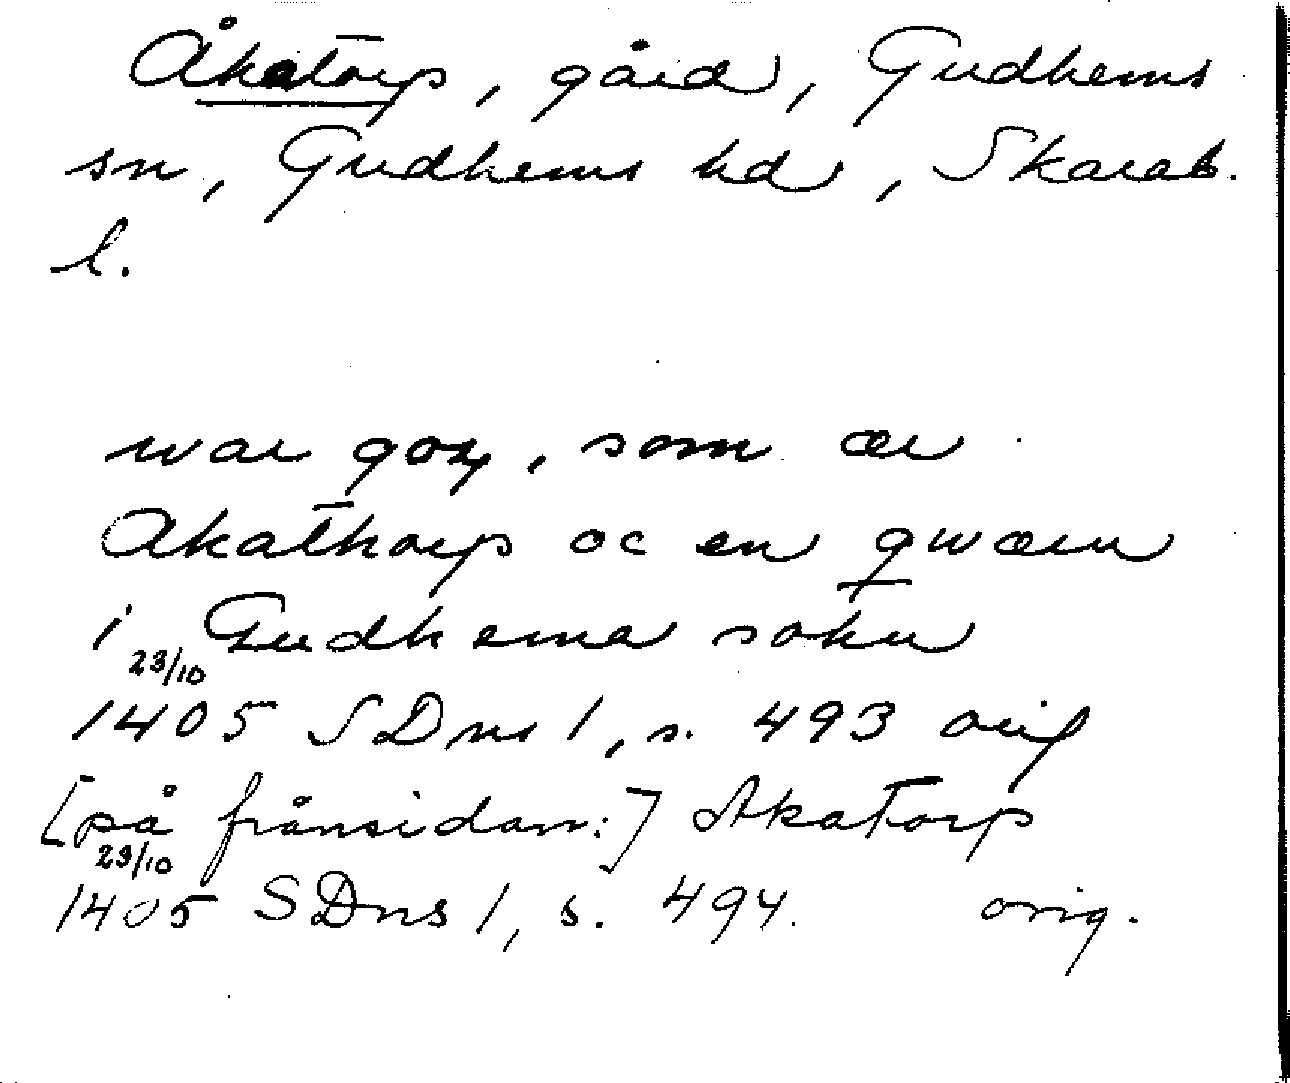 Åkatorp, gård, Gudhems
sn, Gudhems hd, Skarab.
l.
war goz, som ær
Akathorp oc en qwærn
i Gudhema sokn
23/10
1405 SDns 1, s. 493 orig
[på frånsidan:] Akatorp
23/10
1405 SDns 1, s. 494. orig.